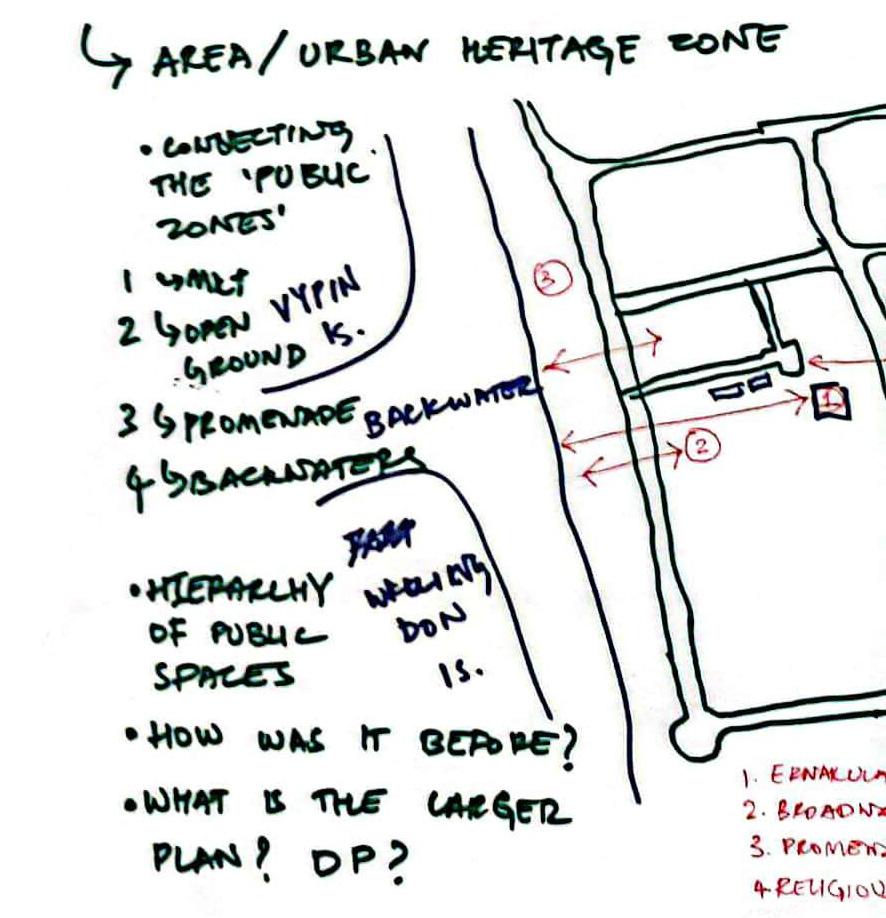 ↳ AREA/URBAN HERITAGE ZONE
• CONNECTING
THE 'PUBLIC
ZONES'
1 ↳ MKT
2 ↳ OPEN
GROUND
3 ↳ PROMENADE
4 ↳ BACKWATERS
VYPIN
IS.
BACKWATER
WELLING
DON
IS.
• HIERARCHY
OF PUBLIC
SPACES
• HOW WAS IT BEFORE?
• WHAT IS THE LARGER
PLAN? DP?
3
1
2
1. ERNAKULA
2. BROADW
3. PROMEN
4. RELIGIOU